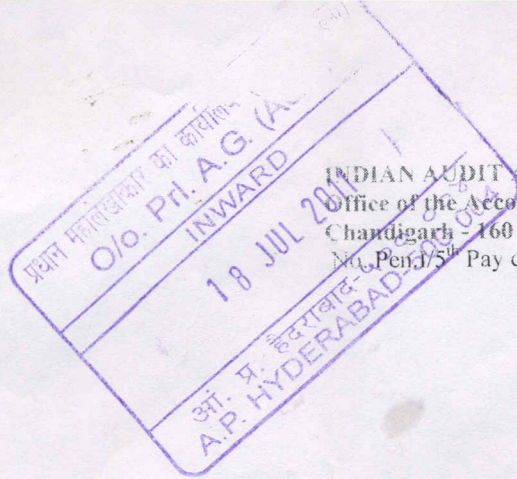 प्रधान महालेखाकार का कार्यालय
O/o. Prl. A.G. (A
INWARD
18 JUL 2011
आं. प्र. हैदराबाद-
A.P. HYDERABAD-500 004
INDIAN AUDIT
Office of the Acco
Chandigarh - 160
No. Pen.1/5th Pay c